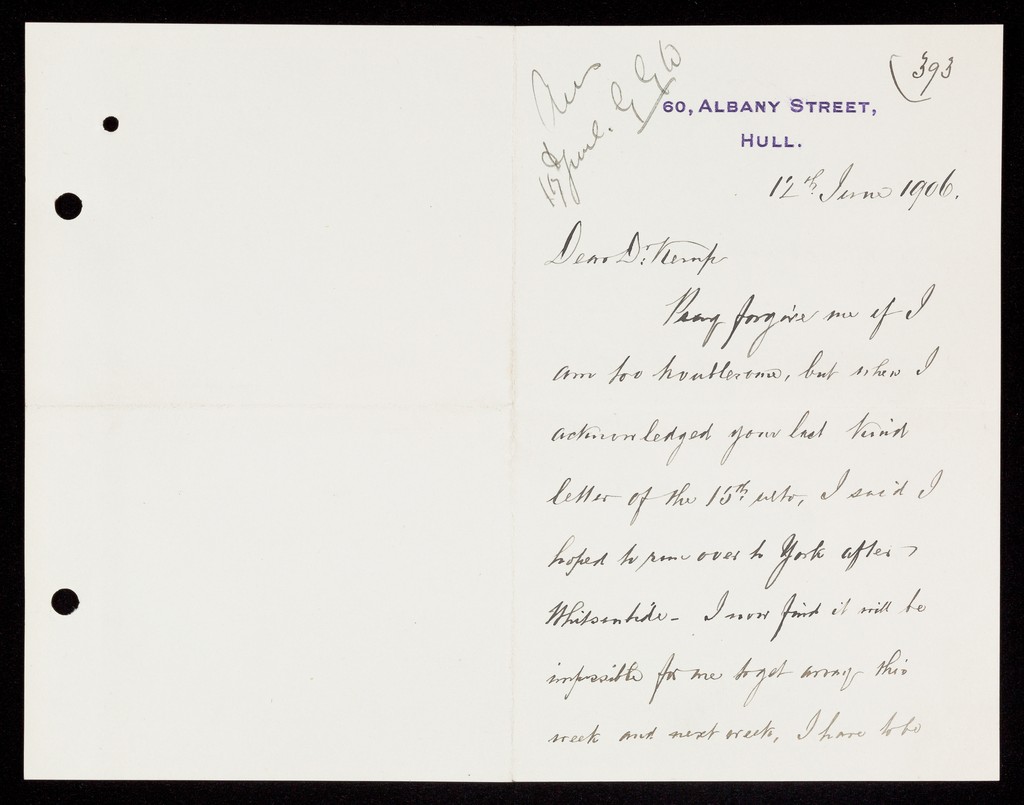 (393
Ans
13 June. G G W
60, ALBANY STREET,
HULL.
12th June 1906.
Dear Dr. Kemp
Pray forgive me if I
am too troublesome, but when I
acknowledged your last kind
letter of the 15th ulto, I said I
hoped to run over to York after
Whitsuntide - I now find it will be
impossible for me to get away this
week and next week, I have to be